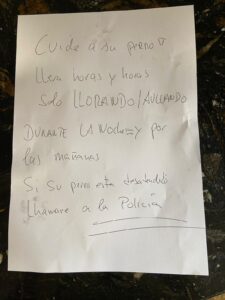 Cuide a su perro
lleva horas y horas
solo LLORANDO/AULLANDO
DURANTE LA NOCHE y por
las mañanas
Si su perro esta desatendido
llamare a la Policía